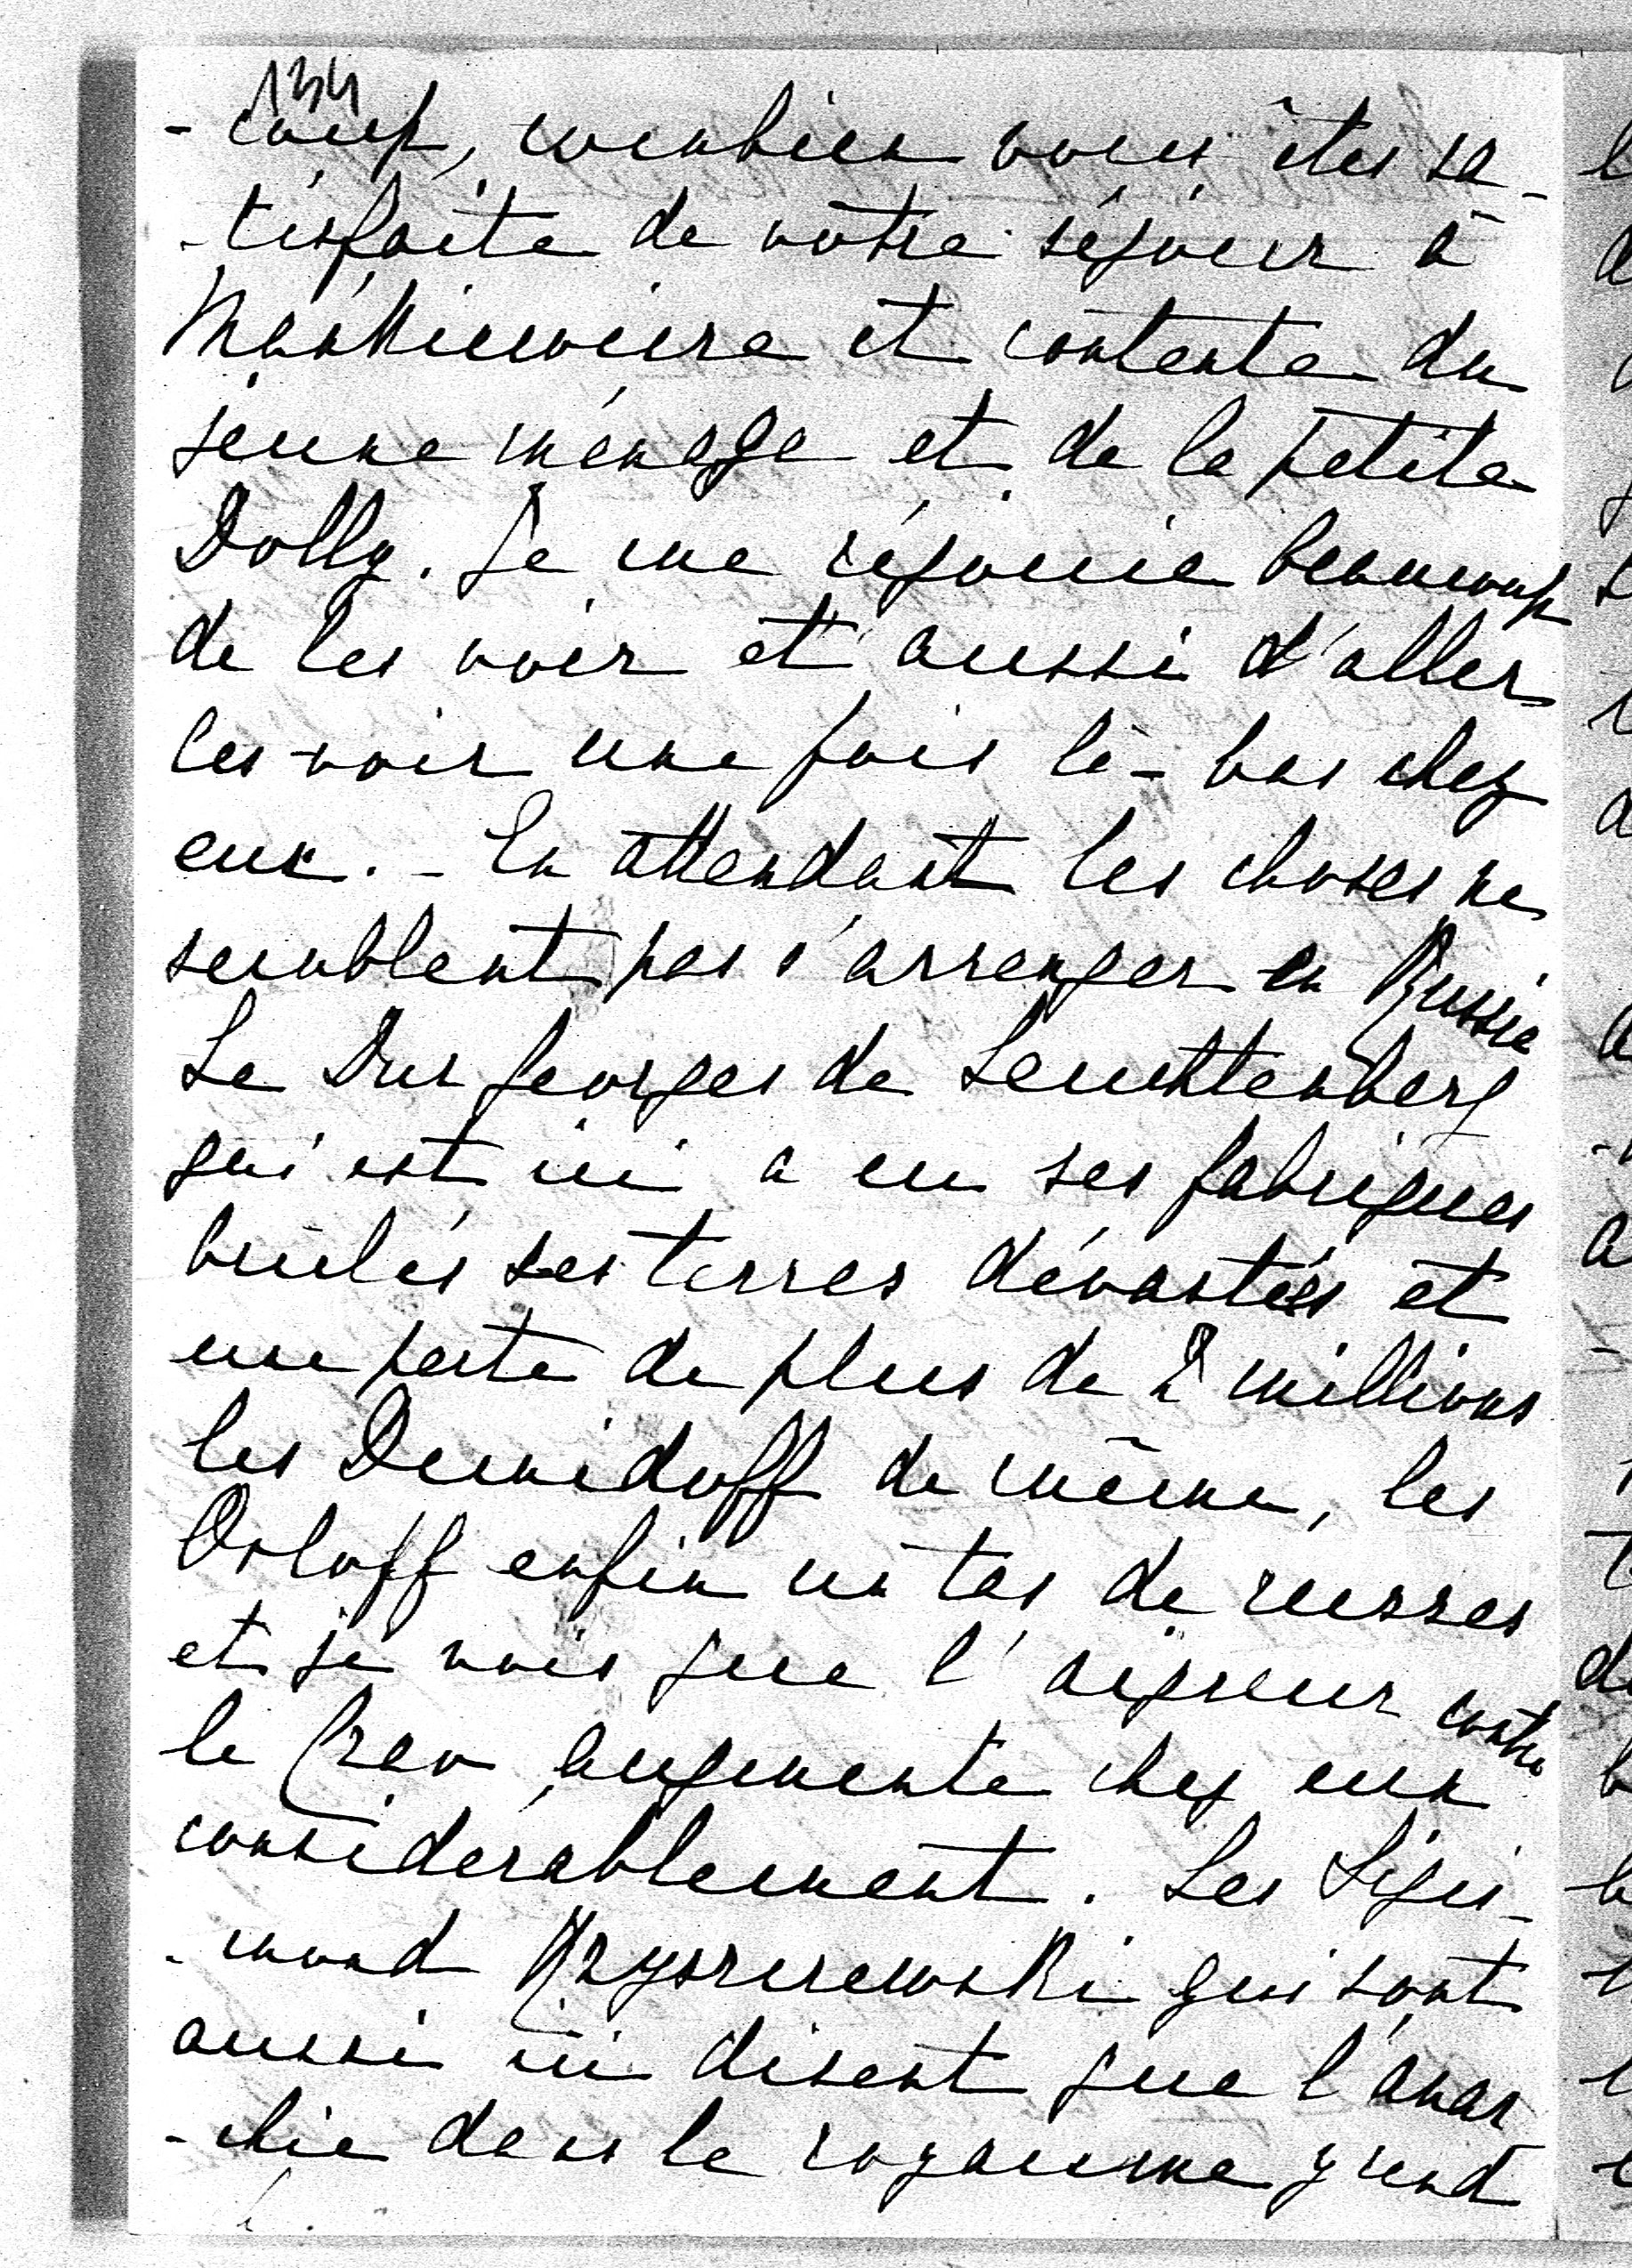 134
- coup, combien vous êtes sa-
-tisfaite de votre séjour à
et contente du
jeune ménage et de la petite
Dolly. Je me réjouie beaucoup
de les voir et aussi d'aller
les voir une fois là-bas chez
eux. - En attendant les choses ne
semblent pas s'arranger en Russie
Le Duc Georges de Leuchtenberg
qui est ici a eu ses fabriques
brûlés ses terres dévastées et
une perte de plus de 2 millions
les Demidoff de même, les
Orloff enfin un tas de russes
et je vois que l'aigreur contre
le Czar augmente chez eux
considerablement. Les Sigis-
-mond qui sont
aussi ici disent que l'anar
-chie dans le royaume grand